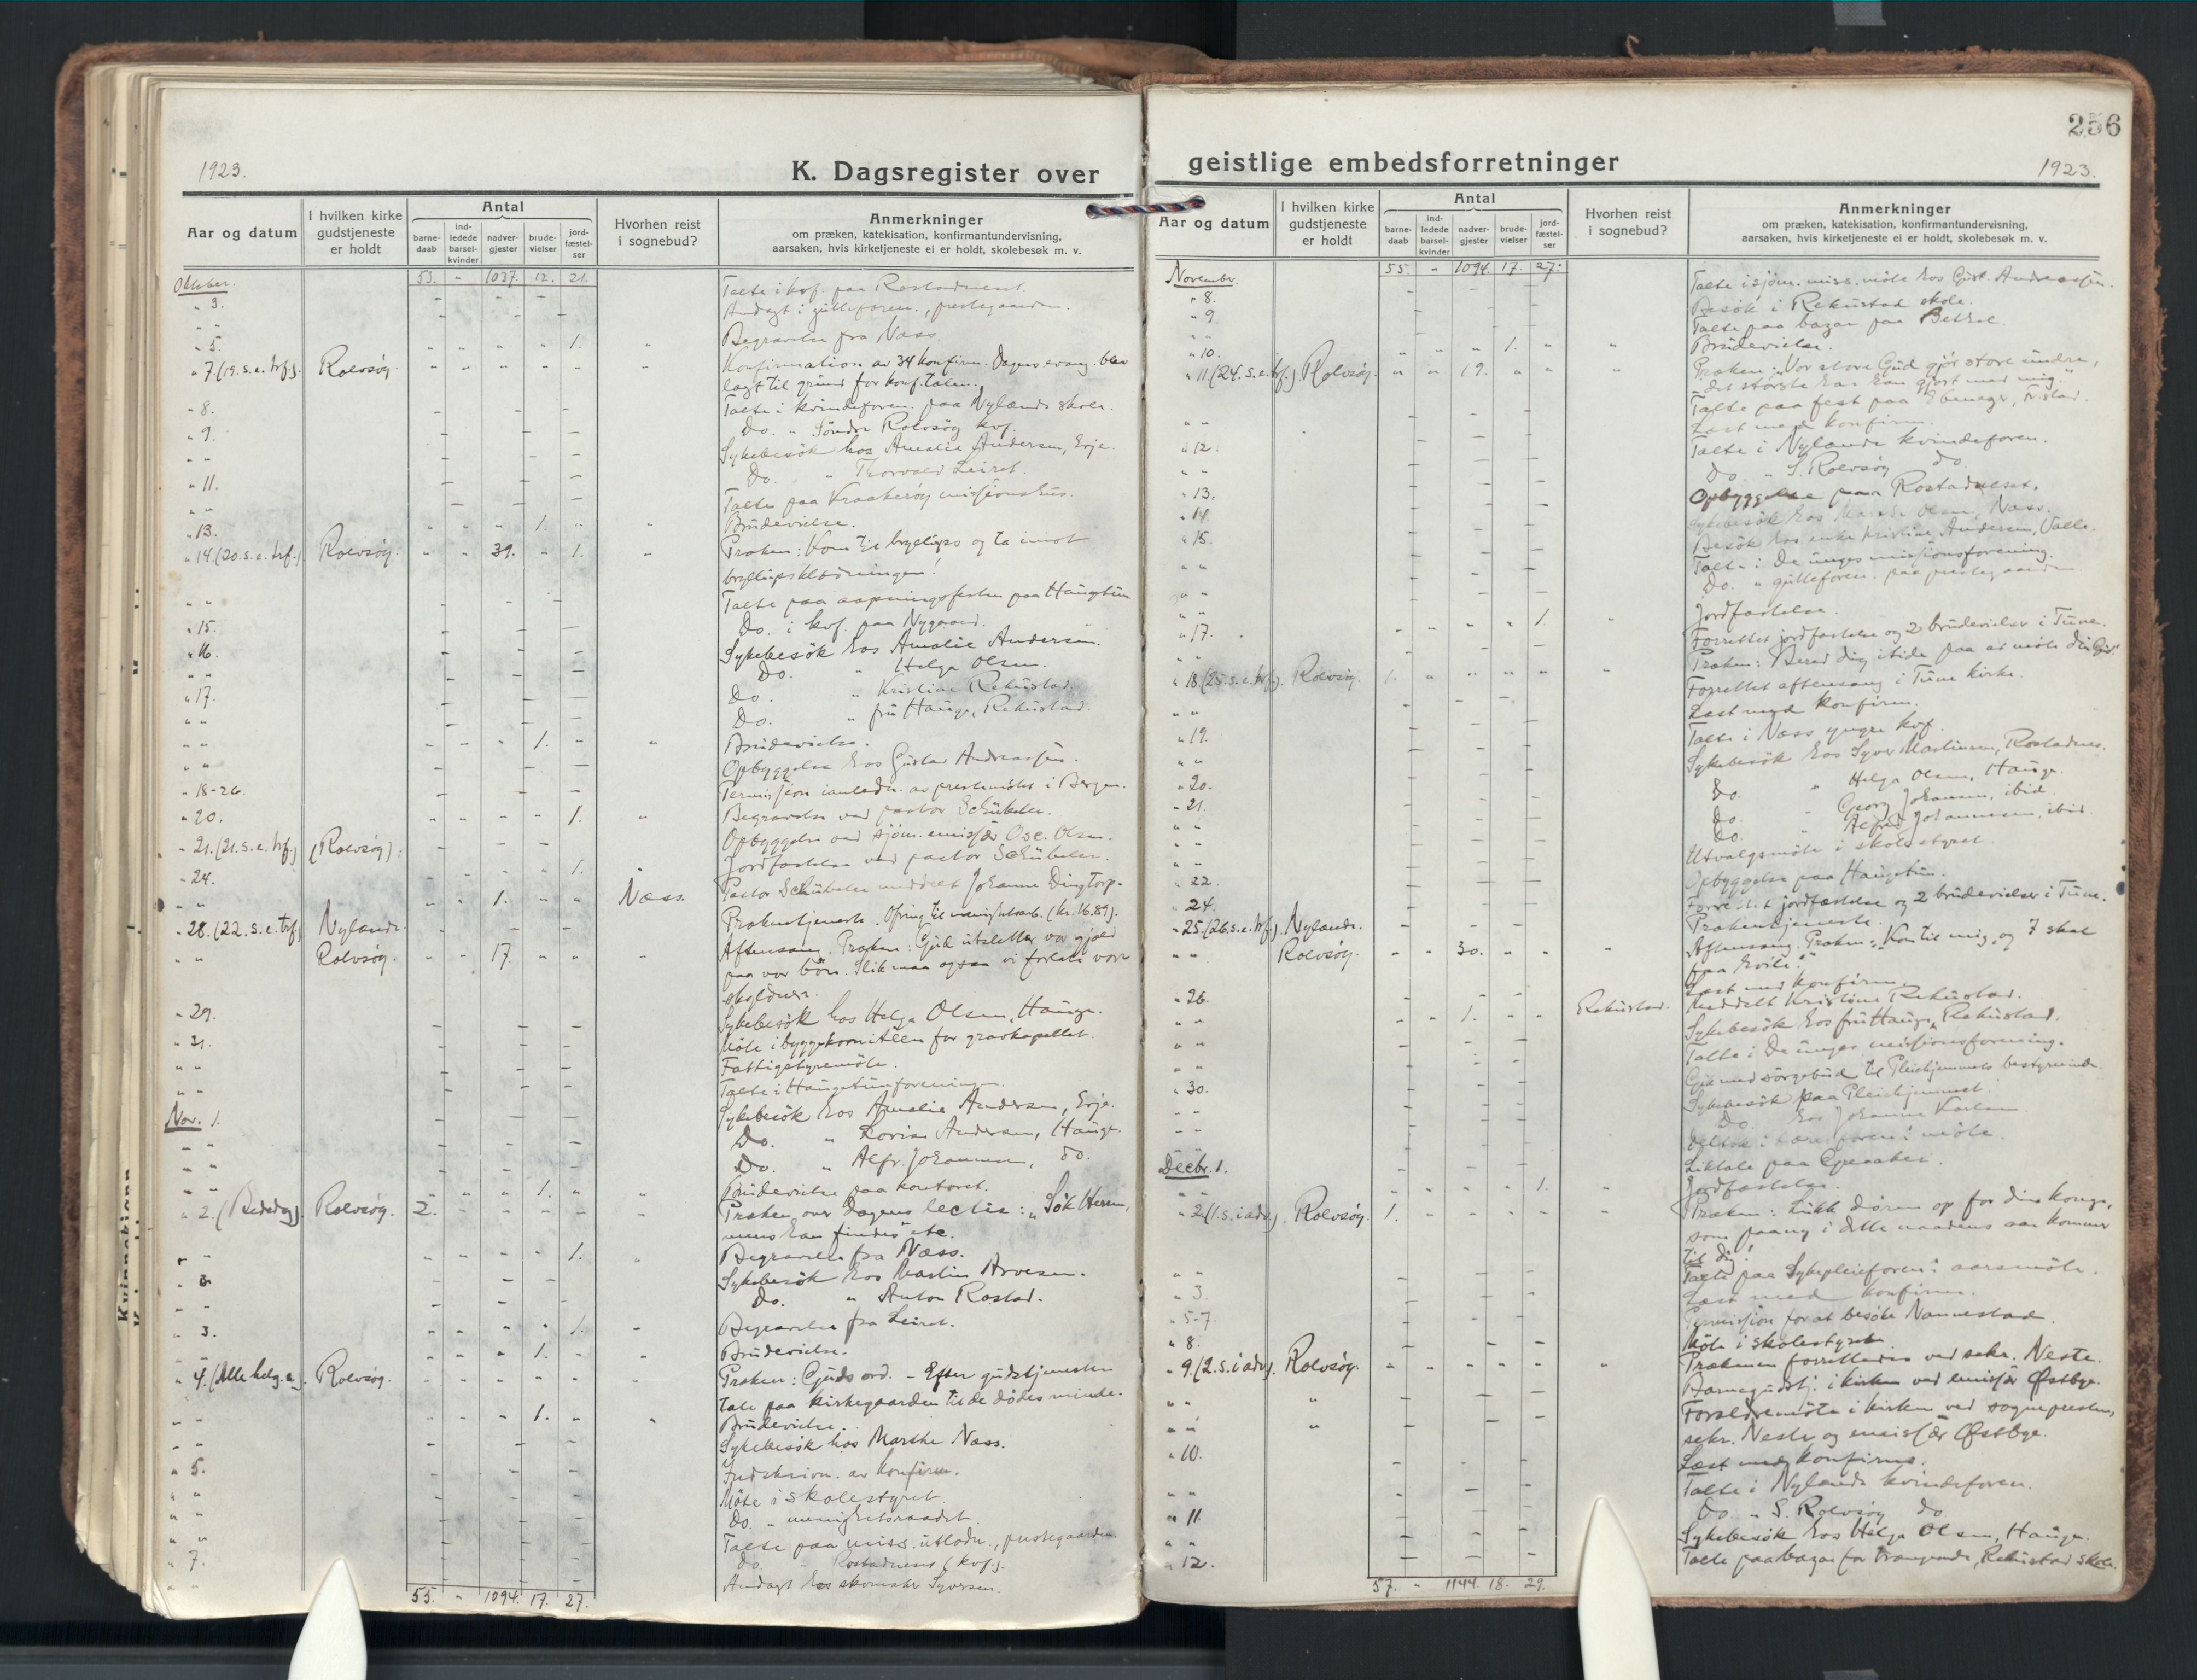 256
1923.
K. Dagsregister over geistlige embedsforretninger
1923.
Aar og datum
I hvilken kirke gudstjeneste er holdt
Antal
barne-daab
ind-ledede barsel-kvinder
nadver-gjester
brude-vielser
jord-fæstel-ser
Hvorhen reist i sognebud?
Anmerkninger
om præken, katekisation, konfirmantundervisning,
aarsaken, hvis kirketjeneste ei er holdt, skolebesøk m. v.
Oktober. 53. - 1037. 12. 21.
" 3. Talte i kvf. paa Rostadneset.
" " Andagt i gutteforen., prestegaarden.
" 5. 1. Begravelse fra Næss.
" 7. (19. s. e. trf.). Rolvsøy. Konfirmation av 34 konfirm. Dagens evang. blev
lagt til grund for konf.talen.
" 8. Talte i kvindeforen. paa Nylænde skole.
" 9. Do. " Søndre Rolvsøy kvf.
" " Sykebesøk hos Amalie Andersen, Evje.
" 11. Do. " Thorvald Leiret.
" " Talte paa Kraakerøy missionshus.
" 13. 1. Brudevielse.
" 14. (20. s. e. trf.) Rolvsøy. 31. - 1. Præken: Kom til bryllups og ta imot
bryllupsklædningen!
" " Talte paa aapningsfesten paa Haugetun
" 15. Do. i kvf. paa Nygaard.
" 16. Sykebesøk hos Amalie Andersen.
" " Do. " Helga Olsen.
" 17. Do. " Kristine Rekustad.
" " Do. " fru Hauge, Rekustad.
" " 1. Brudevielse.
" " Opbyggelse hos Gustav Andreassen.
" 18-26. Permission i anledn. av prestemøtet i Bergen.
" 20. 1. Begravelse ved pastor Schübeler.
" 21. (21. s. e. trf.) (Rolvsøy). Opbyggelse ved sjøm. emissær Osc. Olsen.
" 24. 1. Jordfæstelse ved pastor Schübeler.
" " 1. Næss. Pastor Schübeler meddelt Johanne Dingtorp.
" 28. (22. s. e. trf.) Nylænde. Prækentjeneste. Ofring til menighetsarb. (kr. 16.89).
" " Rolvsøy. 17. Aftensang. Præken: Gud utsletter vor gjæld
paa vor bøn. Slik maa ogsaa vi forlate vore
skyldnere.
" 29. Sykebesøk hos Helga Olsen, Hauge.
" 31. Møte i byggekomitéen for gravkapellet.
" " Fattigstyremøte.
" " Talte i Haugetunforeningen.
Nov. 1. Sykebesøk hos Amalie Andersen, Evje.
" " Do. " Lovise Andersen, Hauge.
" " Do. " Alfr. Johannesen, do.
" " 1. Brudevielse paa kontoret.
" 2. (Bededag). Rolvsøy. 2. Præken over dagens lectie: "Søk Herren,
mens han findes" etc.
" " 1. Begravelse fra Næss.
" " Sykebesøk hos Martin Arvesen.
" " Do. " Anton Rostad.
" 3. 1. Begravelse fra Leiret.
" " 1. Brudevielse.
" 4. (Alle helg. s.). Rolvsøy. Præken: Guds ord. - Efter gudstjenesten
tale paa kirkegaarden til de dødes minde.
" " 1. Brudevielse.
" " Sykebesøk hos Marthe Næss.
" 5. Indskrivn. av konfirm.
" " Møte i skolestyret.
" " Do. " menighetsraadet.
" " Talte paa miss. utlodn., prestegaarden.
" 7. Do. " Rostadneset (kvf.).
" " Andagt hos skomaker Syversen.
55. - 1094. 17. 27.
Aar og datum
I hvilken kirke gudstjeneste er holdt
Antal
barne-daab
ind-ledede barsel-kvinder
nadver-gjester
brude-vielser
jord-fæstel-ser
Hvorhen reist i sognebud?
Anmerkninger
om præken, katekisation, konfirmantundervisning,
aarsaken, hvis kirketjeneste ei er holdt, skolebesøk m. v.
November. 55. - 1094. 17. 27.
" 8. Talte i sjøm. miss. møte hos Gust. Andreassen.
" 9. Besøk i Rekustad skole.
" " Talte paa bazar paa Bethel.
" 10. 1. Brudevielse.
" 11. (24. s. e. trf.) Rolvsøy. 19. Præken: "Vor store Gud gjør store undre,
det største han har gjort med mig."
" " Talte paa fest paa Ebeneser, Fr.stad.
" 12. Læst med konfirm.
" " Talte i Nylænde kvindeforen.
" 13. Do. " S. Rolvsøy do.
" 14. Opbyggelse paa Rostadneset.
" 15. Sykebesøk hos Marthe Olsen, Næss.
" " Besøk hos enke Kristine Andersen, Valle.
" " Talte i De unges missionsforening.
" " Do. " gutteforen. paa prestegaarden
" 17. 1. Jordfæstelse.
" " Forrettet jordfæstelse og 2 brudevielser i Tune.
" 18. (25. s. e. trf.). Rolvsøy. 1. Præken: Bered dig itide paa at møte din Gud.
" " Forrettet aftensang i Tune kirke.
" 19. Læst med konfirm.
" " Talte i Næss yngre kvf.
" 20. Sykebesøk hos Syver Martinsen, Rostadnes.
" 21. Do. " Helga Olsen, Hauge.
" " Do. " Georg Johansen, ibid.
" " Do. " Alfred Johannesen, ibid.
" " Utvalgsmøte i skolestyret.
" 22. Opbyggelse paa Haugetun.
" 24. Forrettet jordfæstelse og 2 brudevielser i Tune.
" 25. (26. s. e. trf.). Nylænde. Prækentjeneste.
" " Rolvsøy. 30. Aftensang. Præken: "Kom til mig, og I skal
faa hvile."
" 26. Læst med konfirm.
" " 1. Rekustad. Meddelt Kristine Rekustad.
" " Sykebesøk hos fru Hauge, Rekustad.
" " Talte i De unges missionsforening.
" 30. Gik med sørgebud til Pleiehjemmets bestyrerinde.
" " Sykebesøk paa Pleiehjemmet.
" " Do. hos Johanne Karlsen
Deltok i møte.
Decbr. 1. Liktale paa Greaaker.
" " 1. Jordfæstelse.
" 2. (1. s. i adv.). Rolvsøy. 1. Præken: Lukk døren op for din konge,
som paany i dette naadens aar kommer
til dig!
" " Talte paa Sykepleieforen.s aarsmøte.
" 3. Læst med konfirm.
" 5-7. Permission for at besøke Nannestad.
" 8. Møte i skolestyret.
" 9. (2. s. i adv.). Rolvsøy. Prækenen forrettedes ved sekr. Neste.
" " " Barnegudstj. i kirken ved emissær Østbye.
" " " Forældremøte i kirken ved sognepresten,
sekr. Neste og emissær Østbye.
" 10. Læst med konfirm.
" " Talte i Nylænde kvindeforen.
" 11. Do. " S. Rolvsøy do.
" " Sykebesøk hos Helga Olsen, Hauge.
" 12. Talte paa bazar for trængende, Rekustad skole.
57. - 1144. 18. 29.